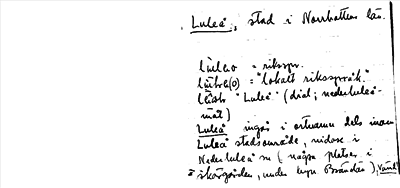 Luleå, stad i Norrbottens län.
= riksspr.
= "lokalt riksspråk."
"Luleå" (dial; nederluleå-
mål)
Luleå ingår i ortnamn dels inom
Luleå stadsområde, vidare i
Nederluleå sn (några platser i
skärgården, under byn Brändön),